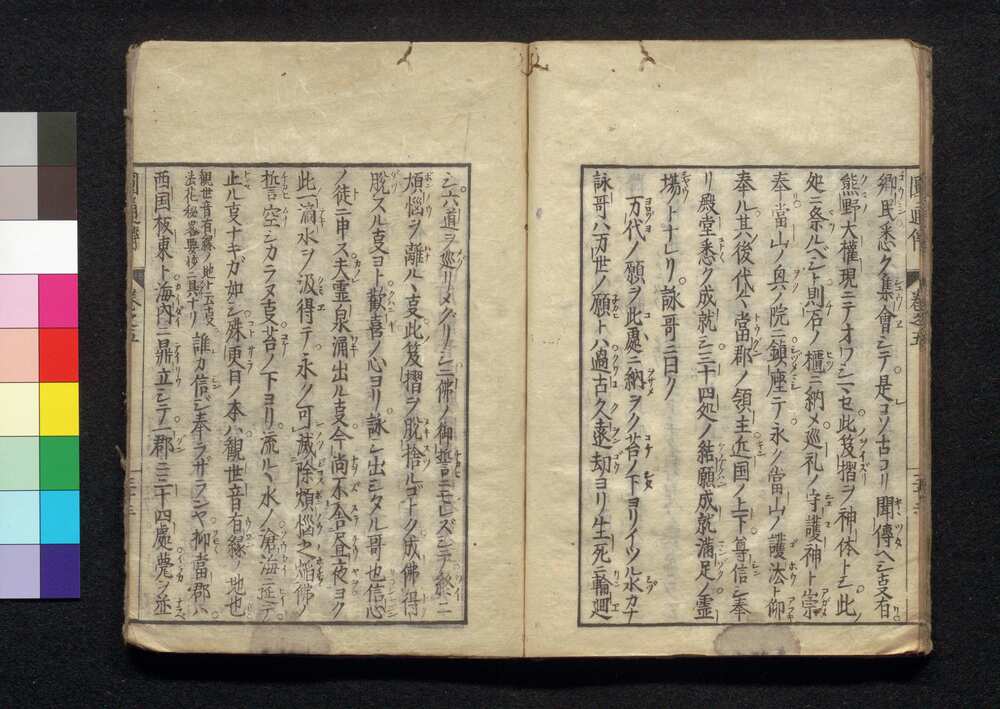 郷民悉ク集會シテ是コソ古ヨリ聞傳ヘシ支有
熊野大權現ニテオワシマセ此笈摺ヲ神体トシ此
処ニ祭ルベシト則石ノ櫃ニ納メ巡礼ノ守護神ト崇
奉當山ノ奥ノ院ニ鎮座テ永ノ當山ノ護法ト仰
奉ル其後代々當郡ノ領主近国ノ上下尊信シ奉
リ殿堂悉ク成就シ三十四処ノ結願成就滿足ノ靈
場ウトナレリ詠哥ニ曰ク
万代ノ願ヲ此處ニ納ヲク苔ノ下ヨリイツル水カナ
詠哥ハ万世ノ願トハ過古久遠劫ヨリ生死ニ輪廻
シ六道ヲ巡リメグリシニ佛ノ御誓ニモレズシテ終ニ
煩悩ヲ離ルヽ支此笈摺ヲ脱捨ルゴトク成佛得
脱スル支ヨト歓喜ノ心ヨリ詠シ出シタル哥也信心
ノ徒ニ申ス夫靈泉涌出ル支今尚不舎昼夜ヨク
此一滴水ヲ汲得テ永ノ可滅除煩悩之焰佛ノ
誓空シカラヌ支苔ノ下ヨリ流ルヽ水ノ滄海ニ延テ
止ル支ナキガ如シ殊更日ノ本ハ観世音有縁ノ地也
観世音有縁ノ地ト云支
法花秘畧要抄ニ具ナリ
誰カ信ジ奉ラザランヤ抑當郡ハ
西国坂東ト海内ニ鼎立シテ一郡ニ三十四處甍ヲ並
圓通傳
卷之五